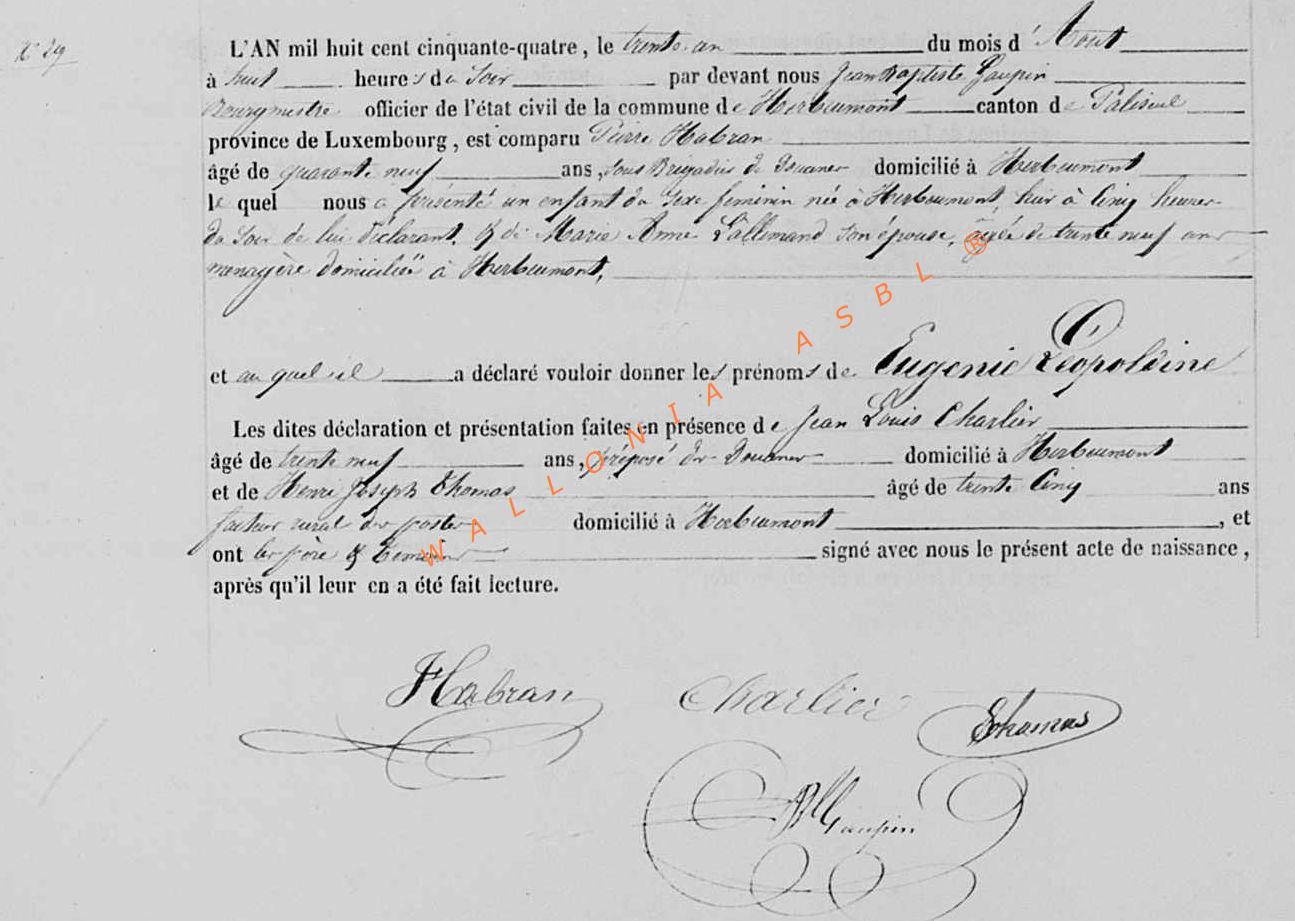 N° 29
L'AN mil huit cent cinquante-quatre, le trente-un du mois d'Aout
à huit heures du Soir par devant nous Jean Baptiste Gaupin
Bourgmestre officier de l'état civil de la commune de Herbeumont canton de Paliseul
province de Luxembourg, est comparu Pierre Habran
âgé de quarante neuf ans, Sous Brigadier de Douanes domicilié à Herbeumont
le quel nous a présenté un enfant du Sexe feminin née à Herbeumont, hier à Cinq heures
du Soir de lui déclarant, & de Marie Anne Lallemand Son épouse, agée de trente neuf ans
menagère domiciliée à Herbeumont,
et au quel il a déclaré vouloir donner les prénoms de Eugenie Léopoldine
Les dites déclaration et présentation faites en présence de Jean Louis Charlier
âgé de trente neuf ans, préposé des Douanes domicilié à Herbeumont
et de Henri Joseph Thomas âgé de trente Cinq ans
facteur rural des postes domicilié à Herbeumont, et
ont les père & temoins signé avec nous le présent acte de naissance,
après qu'il leur en a été fait lecture.
WALLONIA ASBL ®
Habran Charlier Thomas
JB Gaupin